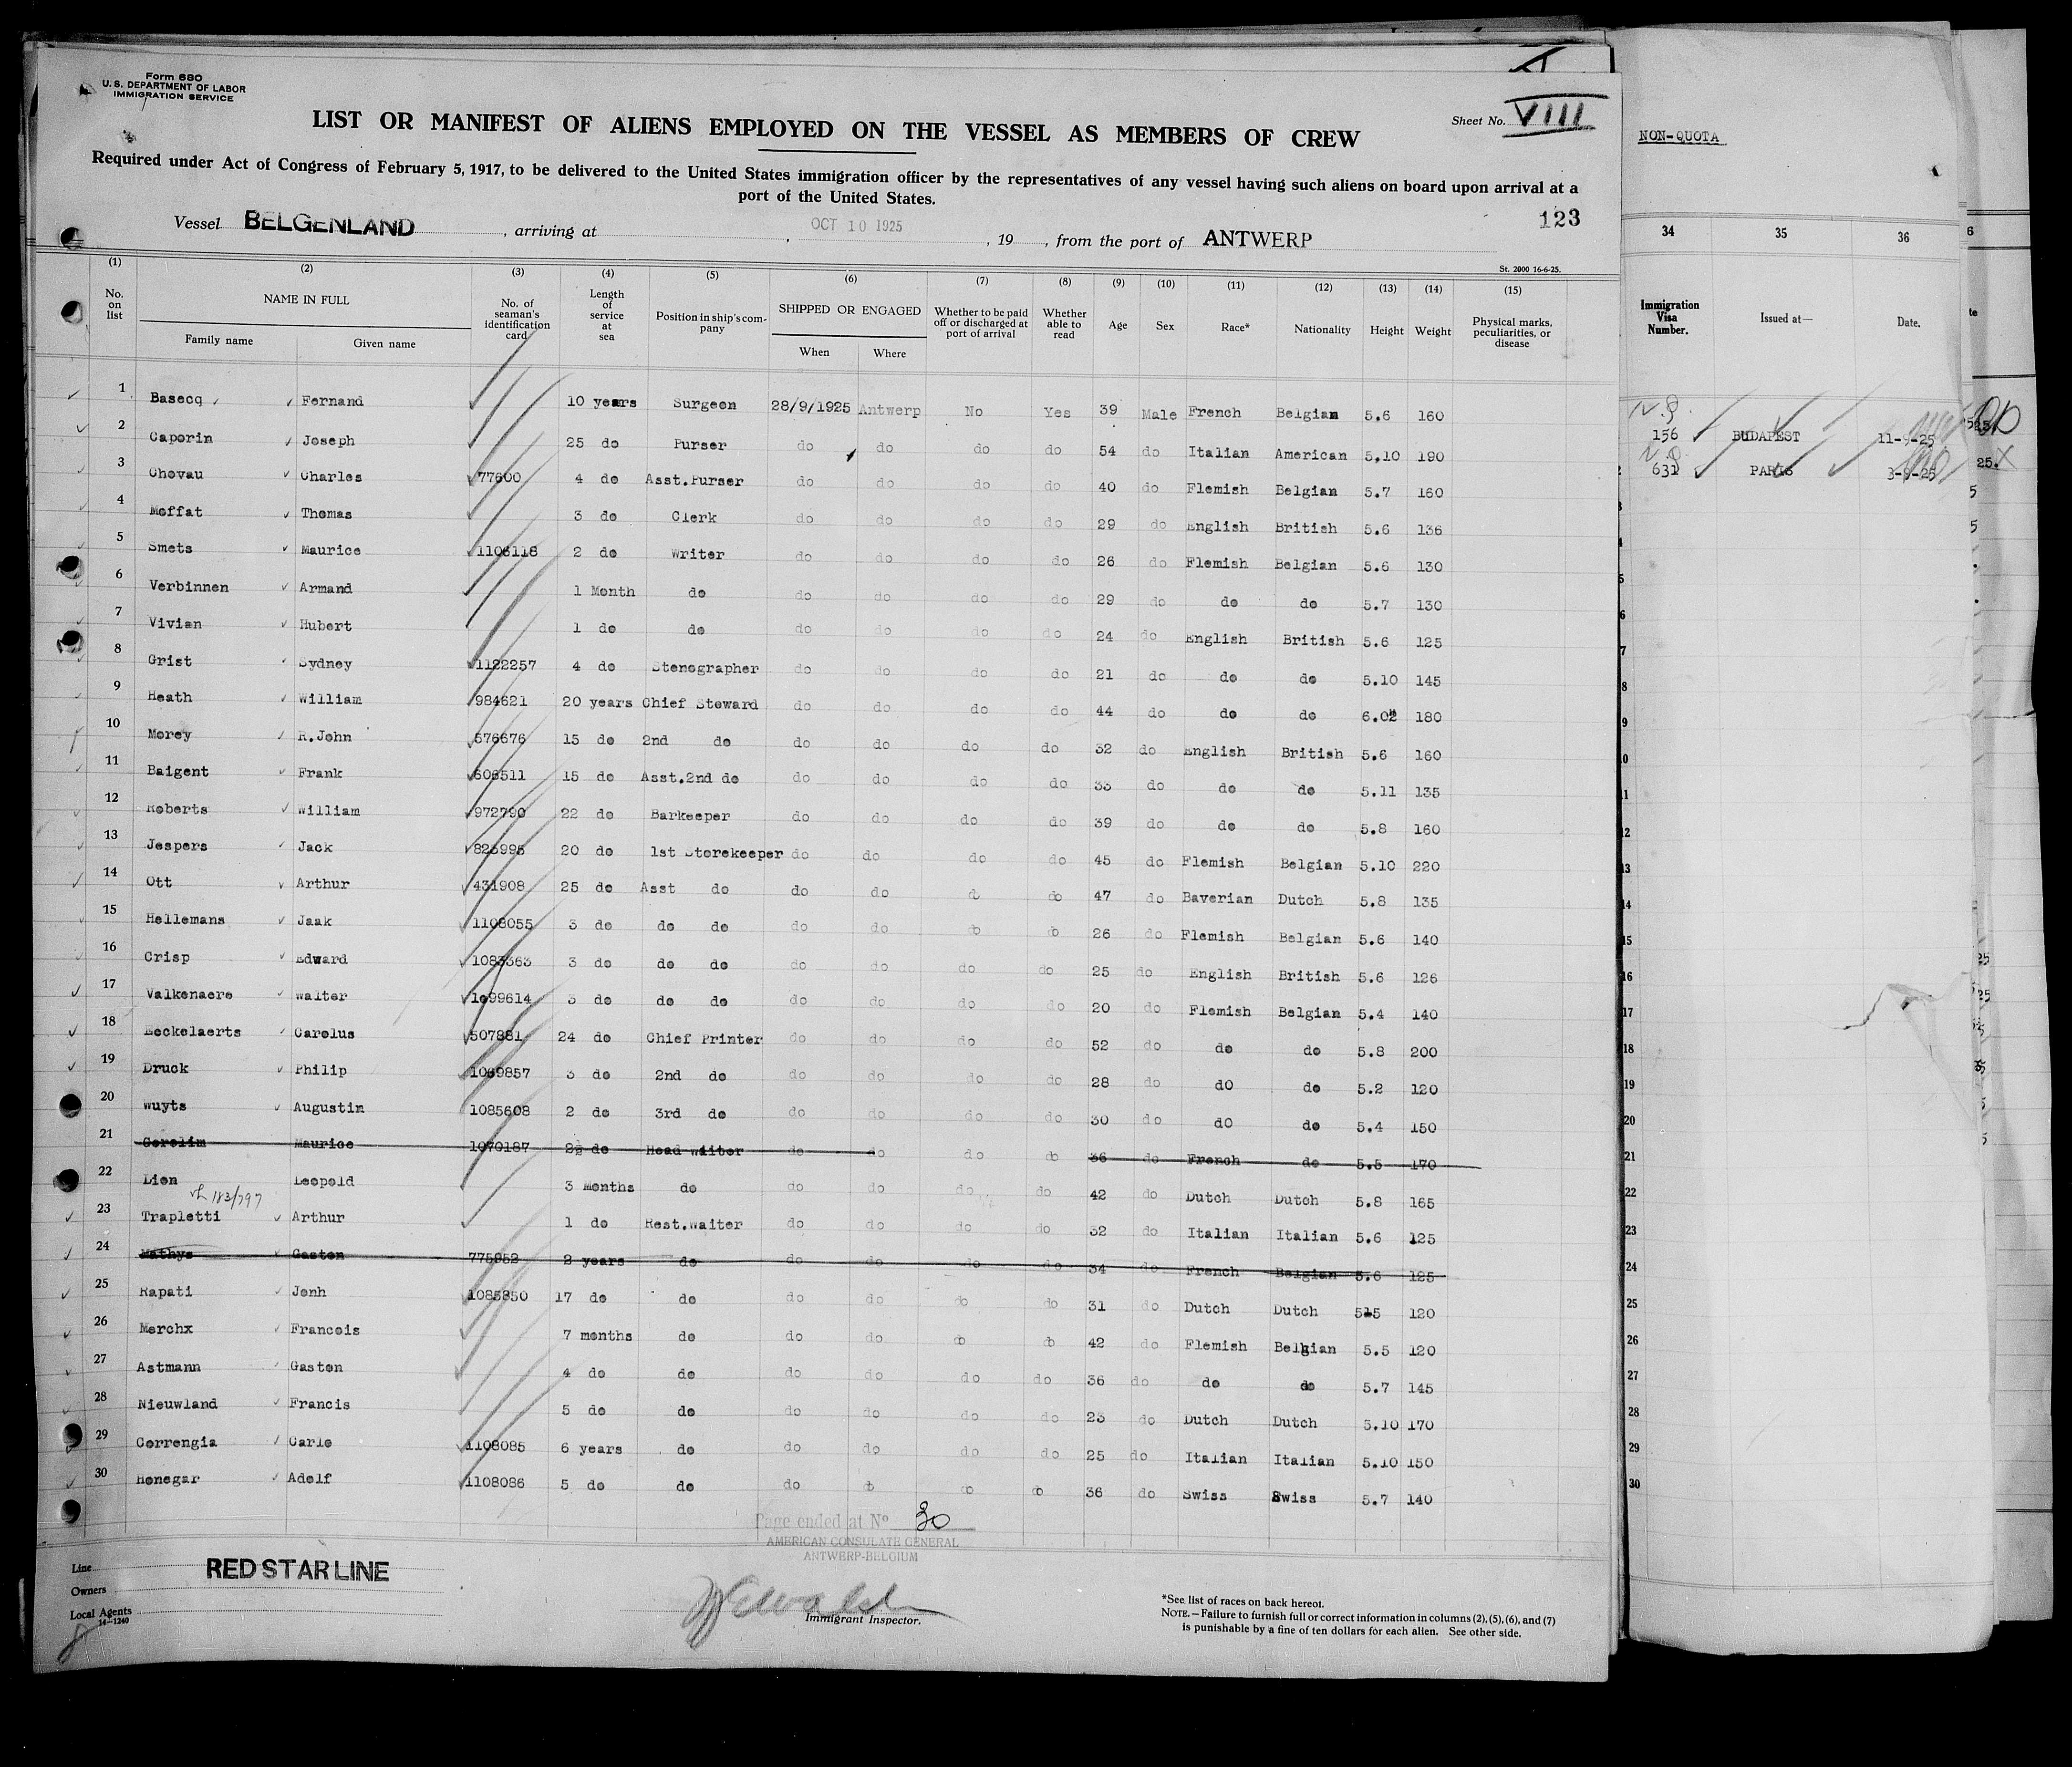 Form 680
U. S. DEPARTMENT OF LABOR
IMMIGRATION SERVICE
LIST OR MANIFEST OF ALIENS EMPLOYED ON THE VESSEL AS MEMBERS OF CREW
Sheet No. VIII
Required under Act of Congress of February 5, 1917, to be delivered to the United States immigration officer by the representatives of any vessel having such aliens on board upon arrival at a
port of the United States.
123
Vessel BELGENLAND, arriving at , OCT 10 1925 , 19 , from the port of ANTWERP
St. 2000 16-6-25.
(1) (2) (3) (4) (5) (6) (7) (8) (9) (10) (11) (12) (13) (14) (15)
No. on list NAME IN FULL Family name Given name No. of seaman's identification card Length of service at sea Position in ship's company SHIPPED OR ENGAGED When Where Whether to be paid off or discharged at port of arrival Whether able to read Age Sex Race* Nationality Height Weight Physical marks, peculiarities, or disease
1 Basecq Fernand 10 years Surgeon 28/9/1925 Antwerp No Yes 39 Male French Belgian 5.6 160
2 Caporin Joseph 25 do Purser do do do do 54 do Italian American 5.10 190
3 Chovau Charles 77600 4 do Asst.Purser do do do do 40 do Flemish Belgian 5.7 160
4 Moffat Thomas 3 do Clerk do do do do 29 do English British 5.6 136
5 Smets Maurice 1106118 2 do Writer do do do do 26 do Flemish Belgian 5.6 130
6 Verbinnen Armand 1 Month do do do do do 29 do do do 5.7 130
7 Vivian Hubert 1 do do do do do do 24 do English British 5.6 125
8 Grist Sydney 1122257 4 do Stenographer do do do do 21 do do do 5.10 145
9 Heath William 984621 20 years Chief Steward do do do do 44 do do do 6.02 180
10 Morey R.John 576676 15 do 2nd do do do do do 32 do English British 5.6 160
11 Baigent Frank 606511 15 do Asst.2nd do do do do do 33 do do do 5.11 135
12 Roberts William 972790 22 do Barkeeper do do do do 39 do do do 5.8 160
13 Jespers Jack 825995 20 do 1st Storekeeper do do do do 45 do Flemish Belgian 5.10 220
14 Ott Arthur 431908 25 do Asst do do do do do 47 do Baverian Dutch 5.8 135
15 Hellemans Jaak 1108055 3 do do do do do do do 26 do Flemish Belgian 5.6 140
16 Crisp Edward 1083363 3 do do do do do do do 25 do English British 5.6 126
17 Valkenaere Walter 1099614 3 do do do do do do do 20 do Flemish Belgian 5.4 140
18 Eeckelaerts Carolus 507881 24 do Chief Printer do do do do 52 do do do 5.8 200
19 Druck Philip 1069857 3 do 2nd do do do do do 28 do dO do 5.2 120
20 Wuyts Augustin 1085608 2 do 3rd do do do do do 30 do dO do 5.4 150
21 Gorelim Maurice 1070187 22 do Head waiter do do do do 36 do French do 5.5 170
22 Lion Leopold 3 months do do do do do 42 do Dutch Dutch 5.8 165
183/797
23 Trapletti Arthur 1 do Rest.waiter do do do do 32 do Italian Italian 5.6 125
24 Mathys Gaston 775852 2 years do do do do do 34 do French Belgian 5.6 125
25 Rapati Jonh 1085850 17 do do do do do do 31 do Dutch Dutch 5.5 120
26 Merchx Francois 7 months do do do do do 42 do Flemish Belgian 5.5 120
27 Astmann Gaston 4 do do do do do do 36 do do do 5.7 145
28 Nieuwland Francis 5 do do do do do do 23 do Dutch Dutch 5.10 170
29 Correngia Carlo 1108085 6 years do do do do do 25 do Italian Italian 5.10 150
30 Honegar Adolf 1108086 5 do do do do do do 36 do Swiss Swiss 5.7 140
Page ended at Nº 30
AMERICAN CONSULATE GENERAL
ANTWERP-BELGIUM
Line RED STAR LINE
Owners
Local Agents
14-1240
Immigrant Inspector.
*See list of races on back hereof.
NOTE.—Failure to furnish full or correct information in columns (2), (5), (6), and (7)
is punishable by a fine of ten dollars for each alien. See other side.
NON-QUOTA
34 35 36
Immigration Visa Number. Issued at— Date.
N.Q.
156 BUDAPEST 11-9-25
N.Q.
631 PARIS 3-9-25